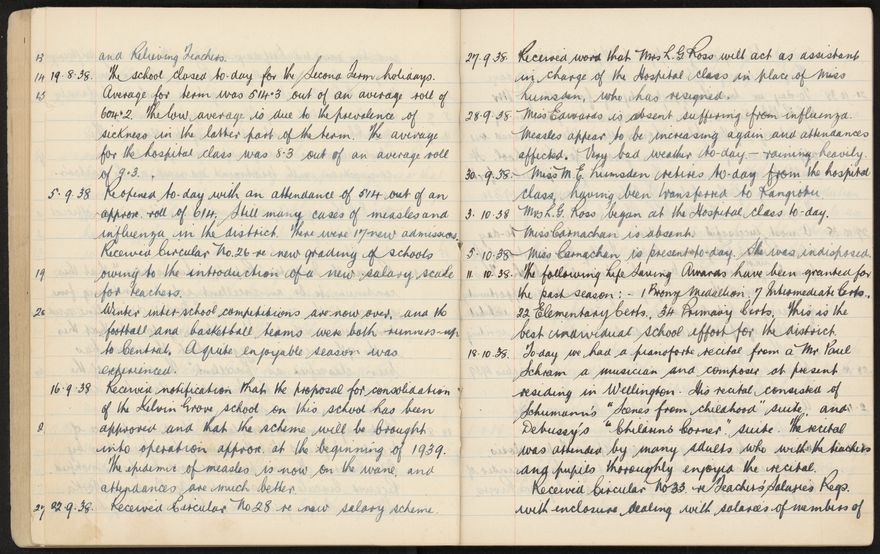 13 and Relieving Teachers.
14 19-8-38. The school closed to-day for the Second Term holidays.
15 Average for term was 514·3 out of an average roll of
604·2. The low average is due to the prevalence of
sickness in the latter part of the term. The average
for the hospital class was 8·3 out of an average roll
of 9·3.
5-9-38 Reopened to-day with an attendance of 514 out of an
approx. roll of 614. Still many cases of measles and
influenza in the district. There were 17 new admissions.
Received Circular No.26 re new grading of schools
19 owing to the introduction of a new salary scale
for teachers.
20 Winter inter-school competitions are now over, and the
football and basketball teams were both runners-up
to Central. A quite enjoyable season was
experienced.
16-9-38 Received notification that the proposal for consolidation
of the Kelvin Grove school on this school has been
approved and that the scheme will be brought
into operation approx. at the beginning of 1939.
The epidemic of measles is now on the wane, and
attendances are much better.
27 22-9-38. Received Circular No 28 re new salary scheme.
27-9-38. Received word that Mrs L.G. Ross will act as assistant
in charge of the Hospital class in place of Miss
Lumsden, who has resigned.
28-9-38 Miss Edwards is absent suffering from influenza.
Measles appear to be increasing again and attendances
affected. Very bad weather to-day - raining heavily.
30-9-38 Miss M. E. Lumsden retires to-day from the hospital
class, having been transferred to Rangiotu
3-10-38 Mrs L.G. Ross began at the Hospital class to-day.
Miss Carnachan is absent.
5-10-38 Miss Carnachan is present to-day. She was indisposed.
11-10-38. The following Life Saving Awards have been granted for
the past season: - 1 Bronze Medallion, 7 Intermediate Certs.,
22 Elementary Certs., 34 Primary Certs. This is the
best individual school effort for the district.
18-10-38. To-day we had a pianoforte recital from a Mr Paul
Schram a musician and composer at present
residing in Wellington. His recital consisted of
Schumann's "Scenes from Childhood" suite, and
Debussy's "Children's Corner" suite. The recital
was attended by many adults who with the teachers
and pupils thoroughly enjoyed the recital.
Received Circular No 33 re Teachers' Salaries Regs.
with enclosure dealing with salaries of members of